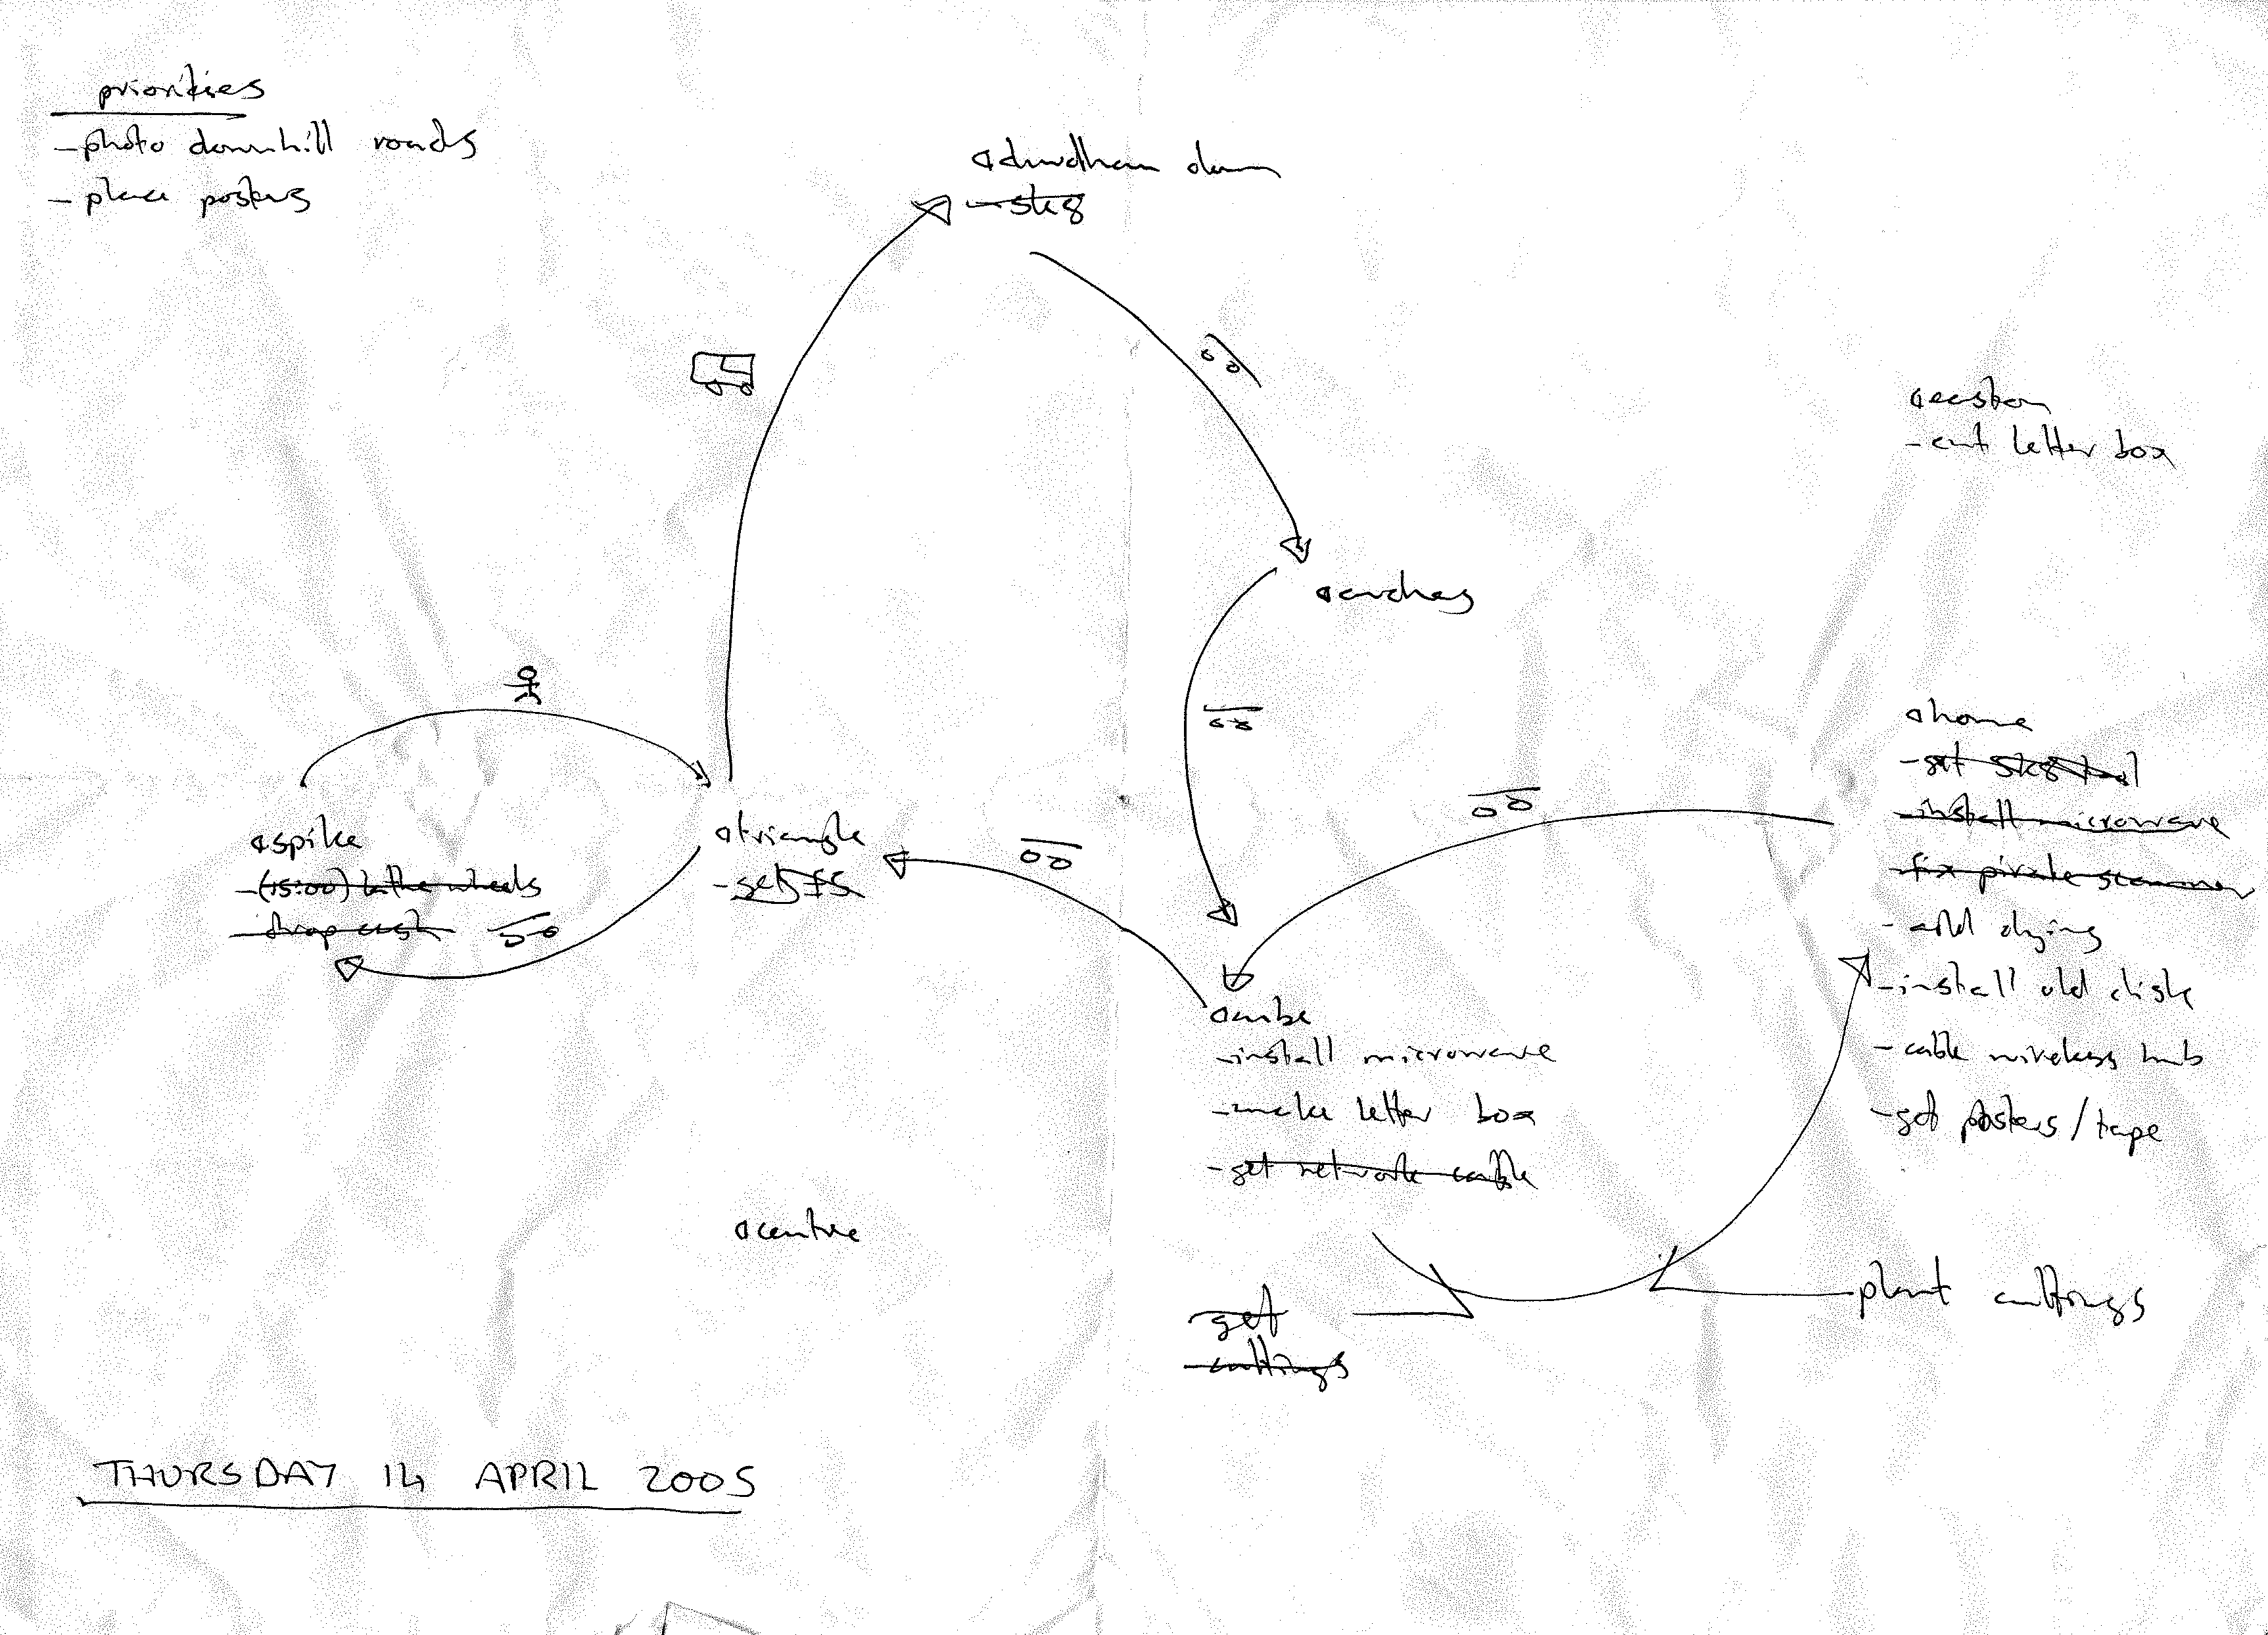 priorities
- photo downhill roads
- place posters
durdham down
- sk8
easton
- cut letter box
arches
home
- get sk8 tool
- install microwave
- fix pirate scanner
- add dying
- install old disk
- cable wireless hub
- get posters / tape
spike
- (15:00) lathe wheels
- drop cash
triangle
- get £s
cube
- install microwave
- make letter box
- get network cable
centre
get
cuttings
plant cuttings
THURSDAY 14 APRIL 2005